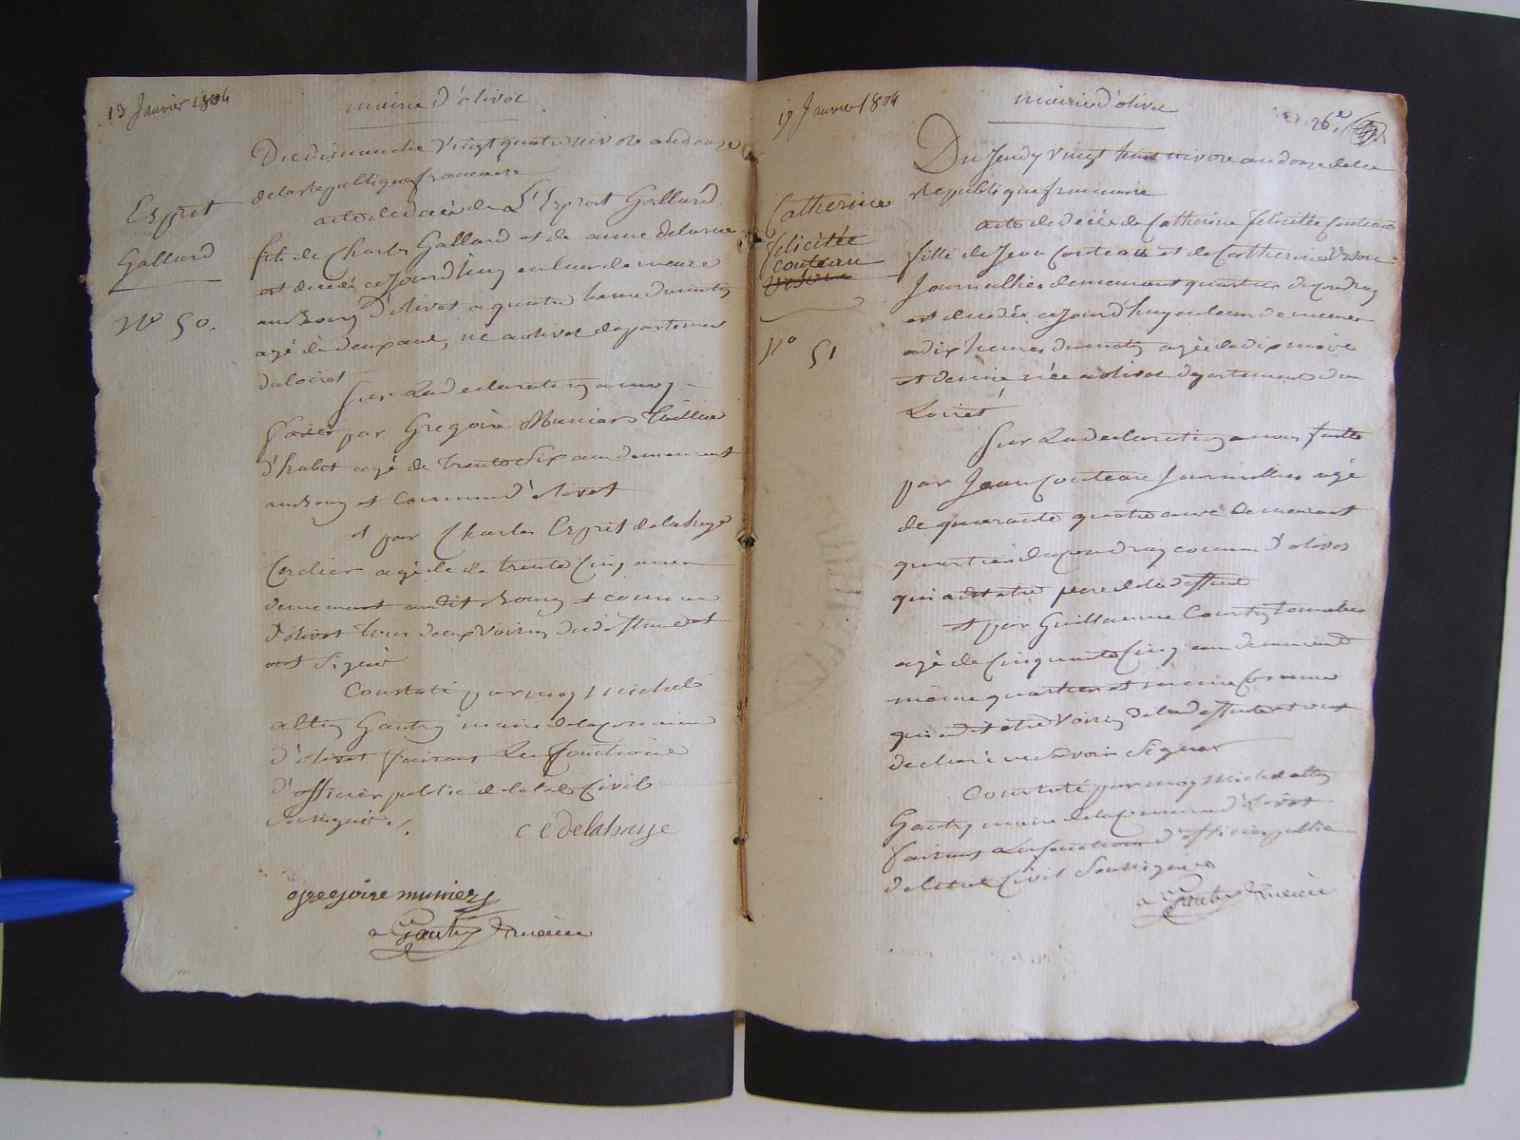 13 Janvier 1804
mairie d'olivet
Du dimanche vingt quatre nivose an douze
de la republique francaise
Esprit
Gallard
N° 50.
acte de decès de Esprit Gallard
fils de Charles Gallard et de anne delarue
est decedé ce jourd'huy en leur demeure
au Bourg d'olivet a quatre heures du matin
agé de deux ans, né a olivet departement
du loiret
Sur la declaration a moy
faite par Gregoire Munier tailleur
d'habit agé de trente six ans demeurant
au Bourg et commune d'olivet
et par Charles Esprit delahaye
Cordier agé de trente cinq ans
demeurant audit Bourg et commune
d'olivet tous deux voisins du deffunt et
ont signé
Constaté par moy Michel
altin Gautry maire de la commune
d'olivet faisant les fonctions
d'officier public de l'etat Civil
Soussigné ./.
c e delahaye
gregoire munier
a Gautry maire
19 Janvier 1804
mairie d'olivet
26.e
Du Jeudy vingt huit nivose an douze de la
republique francaise
Catherine
felicitée
couteau
N° 51
acte de decès de Catherine felicitée couteau
fille de Jean Couteau et de Catherine
Journallier demeurant quartier du poudray
est decedée ce jourd'huy en leur demeure
a dix heures du matin agée de dix mois
et demie née a olivet departement du
Loiret
Sur la declaration a moy faite
par Jean Couteau Journallier agé
de quarante quatre ans demeurant
quartier du poudray commune d'olivet
qui a dit etre pere de la deffunte
et par Guillaume Courtin tonnelier
agé de cinquante cinq ans demeurant
même quartier et même commune
qui a dit etre voisin de la deffunte et ont
declaré ne savoir signer
Constaté par moy Michel altin
Gautry maire de la commune d'olivet
faisant les fonctions d'officier public
de l'etat Civil Soussigné
a Gautry maire